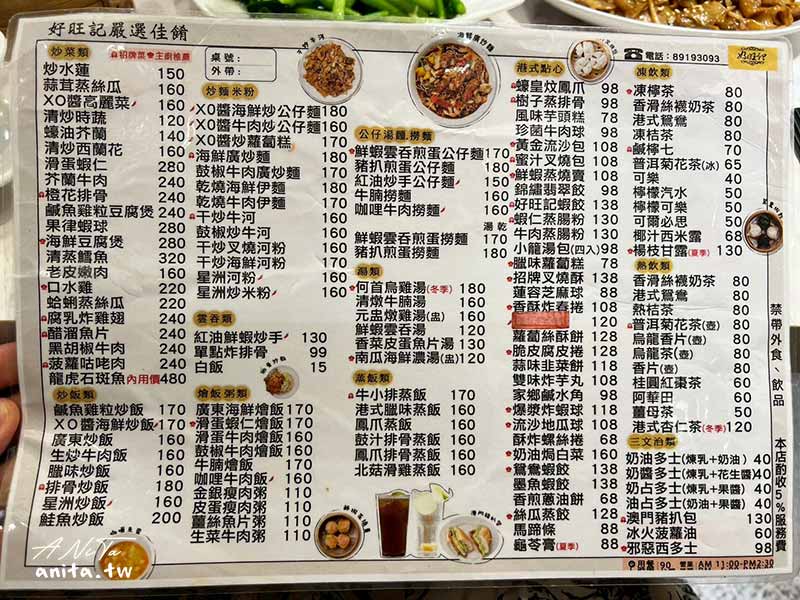 好旺記嚴選佳餚
桌號：
外帶：
☎電話：89193093
好旺記
炒菜類
招牌菜 主廚推薦
炒水蓮 150
蒜茸蒸絲瓜 160
XO醬高麗菜 160
清炒時蔬 120
蠔油芥蘭 140
清炒西蘭花 160
滑蛋蝦仁 280
芥蘭牛肉 240
橙花排骨 240
鹹魚雞粒豆腐煲 240
果律蝦球 280
海鮮豆腐煲 240
清蒸鱈魚 320
老皮嫩肉 160
口水雞 220
蛤蜊蒸絲瓜 220
腐乳炸雞翅 240
醋溜魚片 240
黑胡椒牛肉 240
菠蘿咕咾肉 240
龍虎石斑魚內用價480
炒飯類
鹹魚雞粒炒飯 170
XO醬海鮮炒飯 170
廣東炒飯 160
生炒牛肉飯 160
臘味炒飯 160
排骨炒飯 180
星洲炒飯 160
鮭魚炒飯 200
炒麵米粉
XO醬海鮮炒公仔麵180
XO醬牛肉炒公仔麵160
XO醬炒蘿蔔糕 170
海鮮廣炒麵 180
鼓椒牛肉廣炒麵 170
乾燒海鮮伊麵 180
乾燒牛肉伊麵 170
干炒牛河 160
鼓椒炒牛河 160
干炒叉燒河粉 160
干炒海鮮河粉 170
星洲河粉 160
星洲炒米粉 160
雲吞類
紅油鮮蝦炒手 130
單點炸排骨 99
白飯 15
燴飯粥類
廣東海鮮燴飯 170
滑蛋蝦仁燴飯 170
滑蛋牛肉燴飯 160
鼓椒牛肉燴飯 160
牛腩燴飯 160
金銀瘦肉粥 110
皮蛋瘦肉粥 110
薑絲魚片粥 110
生菜牛肉粥 110
公仔湯麵.撈麵
鮮蝦雲吞煎蛋公仔麵170
豬扒煎蛋公仔麵 180
紅油炒手公仔麵 150
牛腩撈麵 160
咖哩牛肉撈麵 160
湯 乾
鮮蝦雲吞煎蛋撈麵 170
豬扒煎蛋撈麵 180
湯類
何首烏雞湯(冬季) 180
清燉牛腩湯 160
元盅燉雞湯(盅) 160
鮮蝦雲吞湯 120
香菜皮蛋魚片湯 130
南瓜海鮮濃湯(盅)120
蒸飯類
牛小排蒸飯 170
港式臘味蒸飯 160
鳳爪蒸飯 160
鼓汁排骨蒸飯 160
鳳爪排骨蒸飯 160
北菇滑雞蒸飯 160
港式點心
蠔皇炆鳳爪 98
樹子蒸排骨 98
風味芋頭糕 78
珍菌牛肉球 98
黃金流沙包 108
蜜汁叉燒包 108
鮮蝦蒸燒賣 108
錦繡翡翠餃 98
好旺記蝦餃 138
蝦仁蒸腸粉 130
牛肉蒸腸粉 130
小龍湯包(四入)98
臘味蘿蔔糕 78
招牌叉燒酥 138
蓮容芝麻球 88
香酥炸春捲 108
120
蘿蔔絲酥餅 128
脆皮腐皮捲 128
蒜味韭菜餅 118
雙味炸芋丸 108
家鄉鹹水角 98
爆漿炸蝦球 118
流沙地瓜球 108
酥炸螺絲捲 68
奶油焗白菜 160
鴛鴦蝦餃 130
墨魚蝦餃 130
香煎蔥油餅 68
絲瓜蒸餃 128
馬蹄條 88
龜苓膏(夏季) 88
凍飲類
凍檸茶 80
香滑絲襪奶茶 80
港式鴛鴦 80
凍桔茶 80
鹹檸七 70
普洱菊花茶(冰) 65
可樂 40
檸檬汽水 50
檸檬可樂 50
可爾必思 50
椰汁西米露 68
楊枝甘露(夏季) 130
熱飲類
香滑絲襪奶茶 80
港式鴛鴦 80
熱桔茶 80
普洱菊花茶(壺) 80
烏龍香片(壺) 80
烏龍茶(壺) 80
香片(壺) 80
桂圓紅棗茶 60
阿華田 60
薑母茶 50
港式杏仁茶(冬季)120
三文治類
奶油多士(煉乳+奶油) 40
奶醬多士(煉乳+花生醬)40
奶占多士(煉乳+果醬) 40
油占多士(奶油+果醬) 40
澳門豬扒包 130
冰火菠蘿油 60
邪惡西多士 98
禁帶外食、飲品
本店酌收5%服務費
AM 11:00-PM2:30
ANiTa
anita.tw